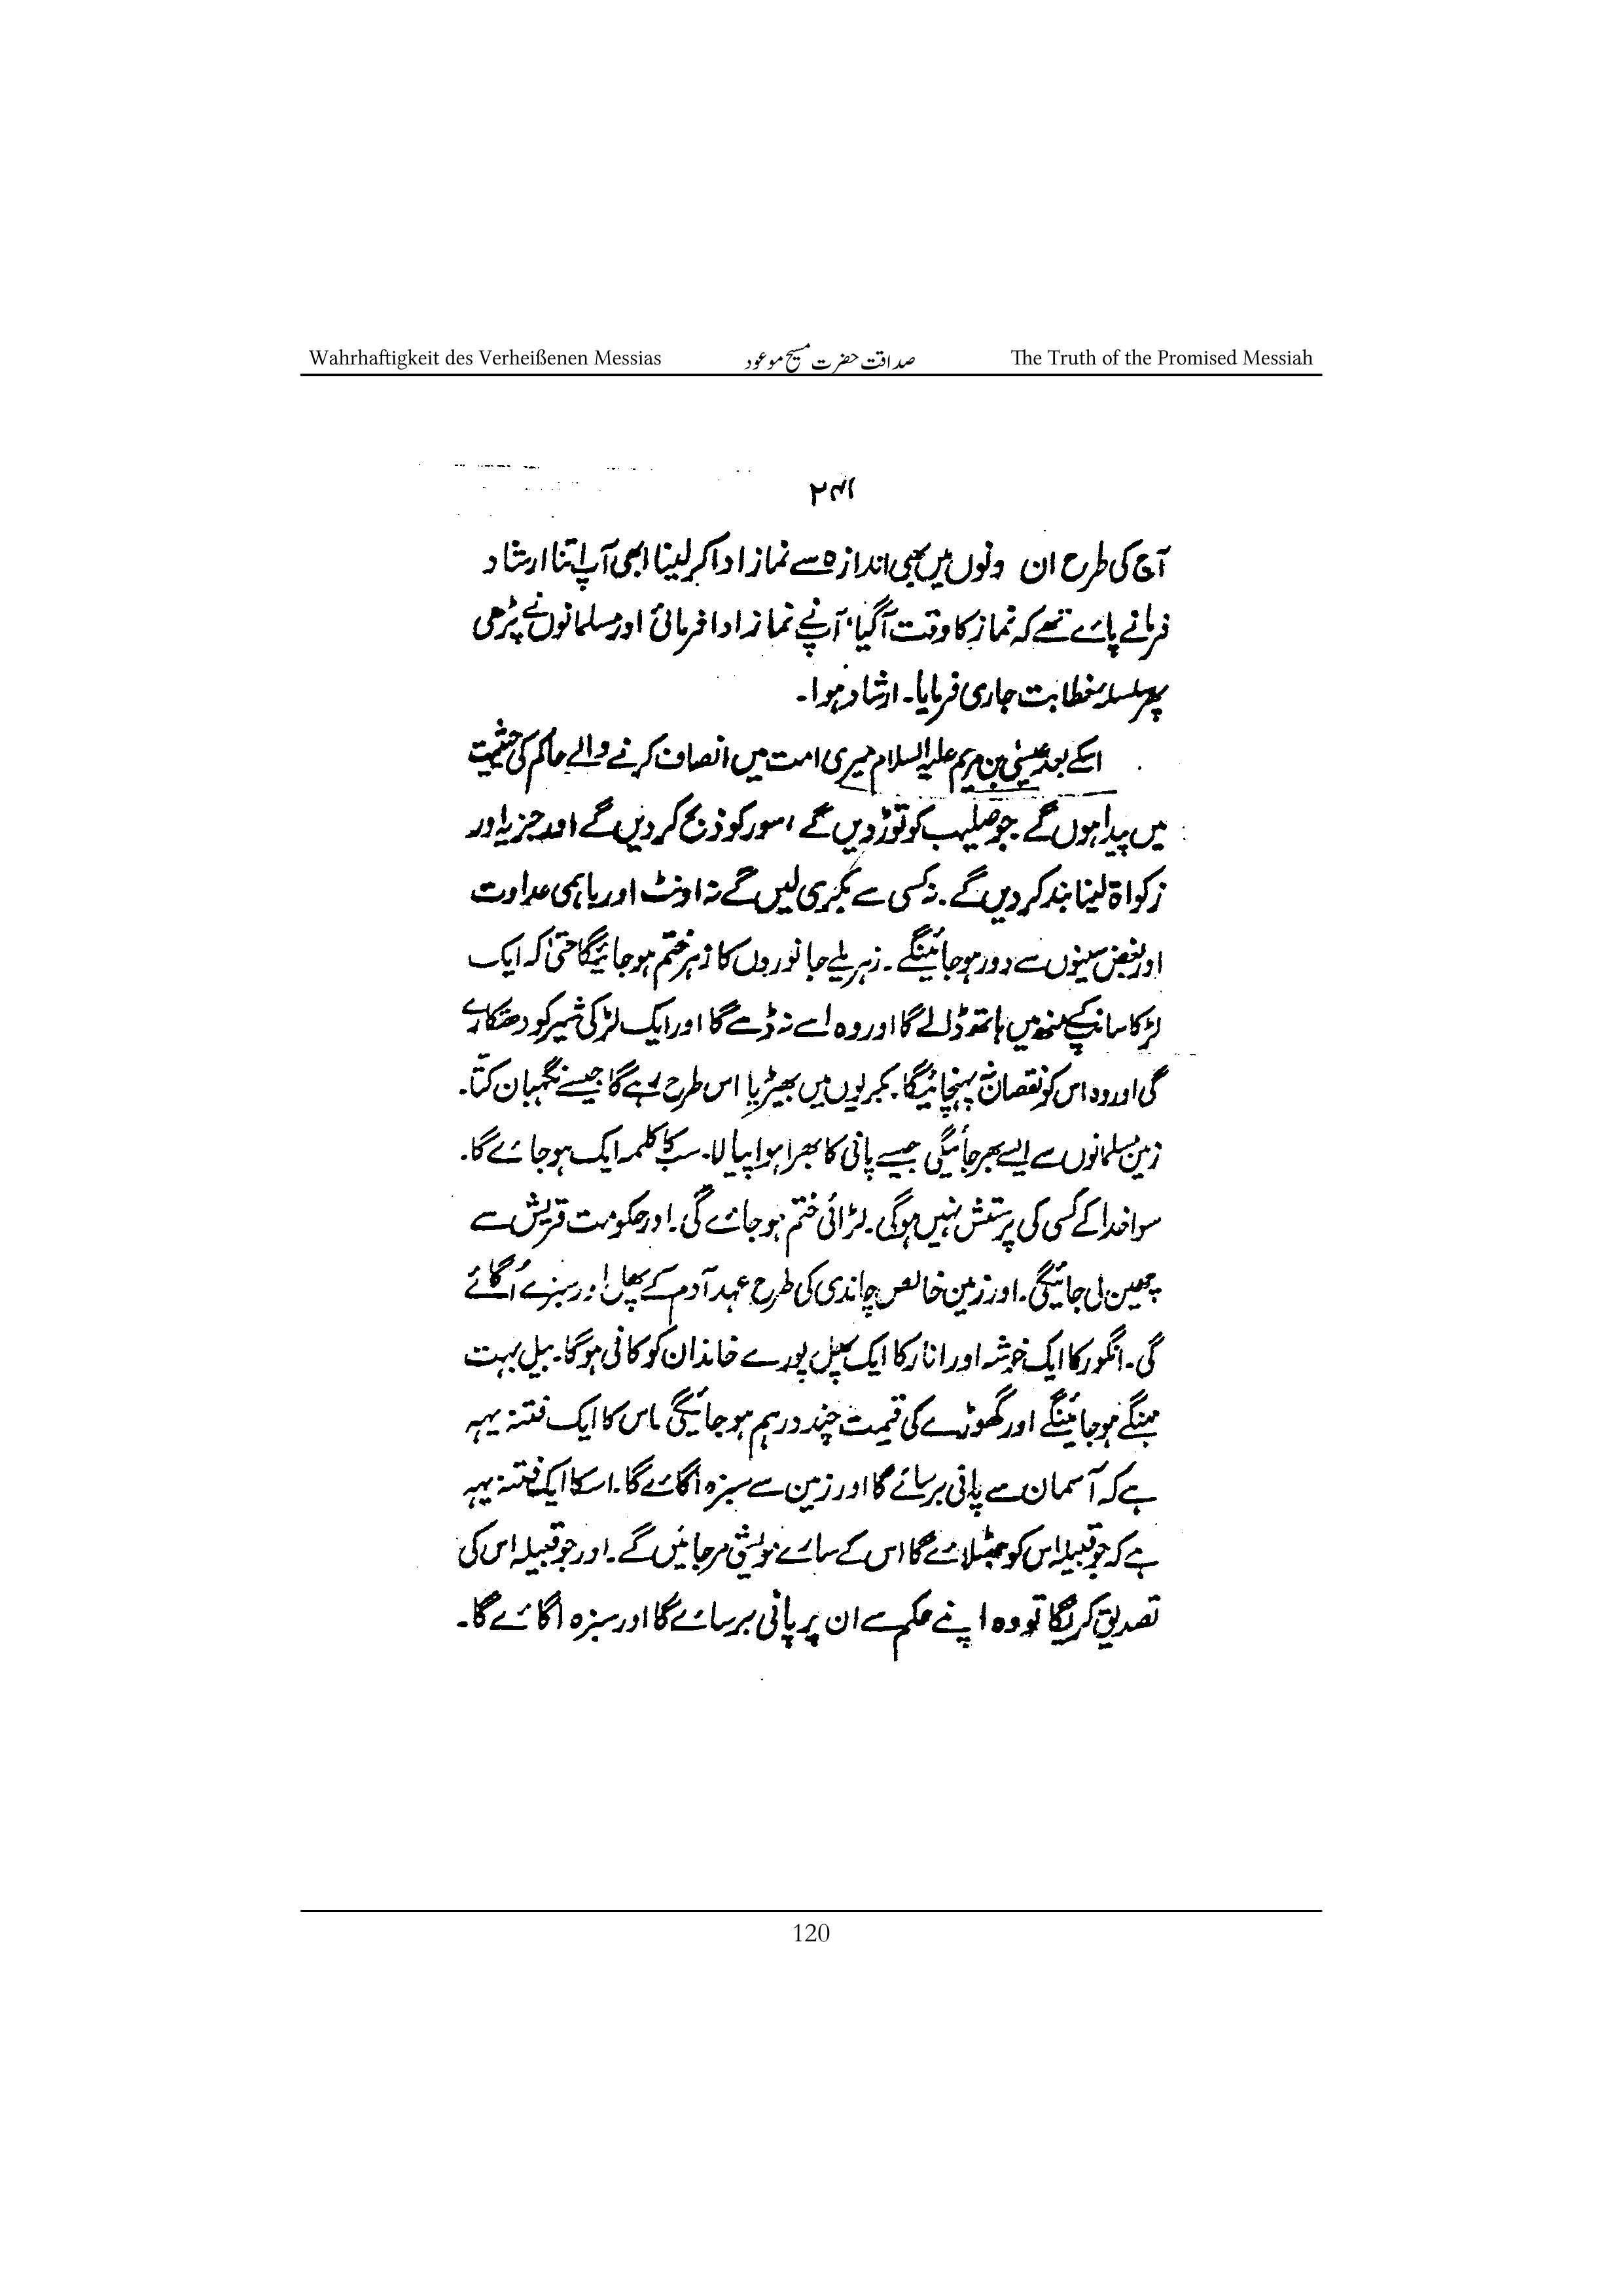 Wahrhaftigkeit des Verheißenen Messias صداقت حضرت مسیح موعود The Truth of the Promised Messiah
آج کی طرح ان دنوں میں بھی اندازہ سے نماز ادا کر لینا ابھی آپ اتنا ارشاد
فرمانے پائے تھے کہ نماز کا وقت آگیا، آپنے نماز ادا فرمائی اور مسلمانوں نے پڑھی
پھر سلسلہ خطابت جاری فرمایا۔ ارشاد ہوا۔
اسکے بعد عیسیٰ بن مریم علیہ السلام میری امت میں انصاف کرنے والے حاکم کی حیثیت
میں پیدا ہوں گے جو صلیب کو توڑ دیں گے، سور کو ذبح کر دیں گے اور جزیہ اور
زکواۃ لینا بند کر دیں گے۔ نہ کسی سے بکری لیں گے نہ اونٹ اور باہمی عداوت
اور بغض سینوں سے دور ہو جائینگے۔ زہریلے جانوروں کا زہر ختم ہو جائیگا حتیٰ کہ ایک
لڑکا سانپ کے منھ میں ہاتھ ڈالے گا اور وہ اسے نہ ڈسے گا اور ایک لڑکی شیر کو دھتکارے
گی اور وہ اس کو نقصان نہ پہنچائیگا۔ بکریوں میں بھیڑیا اس طرح رہے گا جیسے نگہبان کتّا۔
زمین مسلمانوں سے ایسے بھر جائیگی جیسے پانی کا بھرا ہوا پیالا۔ سب کا کلمہ ایک ہو جائے گا۔
سوا خدا کے کسی کی پرستش نہیں ہوگی۔ لڑائی ختم ہو جائے گی۔ اور حکومت قریش سے
چھین لی جائیگی۔ اور زمین خالص چاندی کی طرح عہد آدم کے پھل اور سبزے اُگائے
گی۔ انگور کا ایک خوشہ اور انار کا ایک پھل پورے خاندان کو کافی ہوگا۔ بیل بہت
مہنگے ہو جائینگے اور گھوڑے کی قیمت چند درہم ہو جائیگی۔ اس کا ایک فتنہ یہ
ہے کہ آسمان سے پانی برسائے گا اور زمین سے سبزہ اگائے گا۔ اسکا ایک فتنہ یہ
ہے کہ جو قبیلہ اس کو جھٹلائے گا اس کے سارے مویشی مر جائیں گے۔ اور جو قبیلہ اس کی
تصدیق کریگا تو وہ اپنے حکم سے ان پر پانی برسائے گا اور سبزہ اگائے گا۔
120